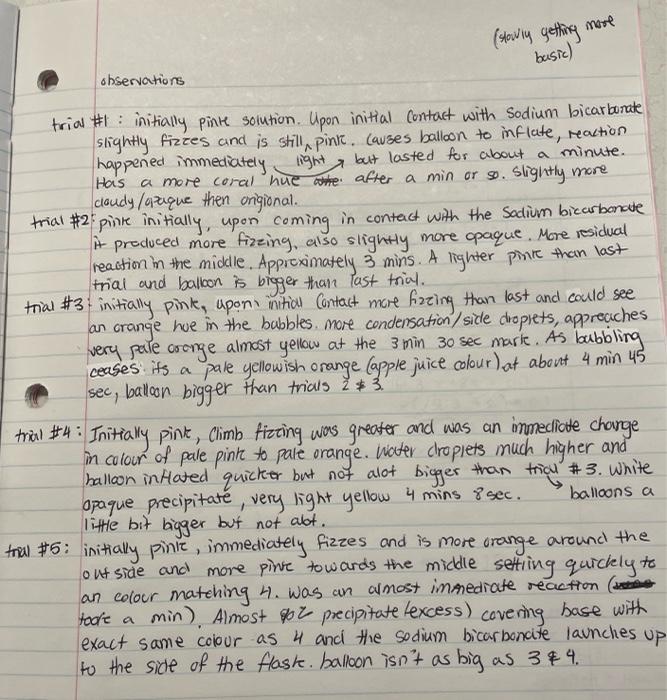 (slowly getting more
basic)
observations
trial #1 : initially pink solution. Upon initial contact with Sodium bicarbonate
slightly fizzes and is still light pink. Causes balloon to inflate, reaction
happened immediately but lasted for about a minute.
Has a more coral hue after a min or so. slightly more
cloudy/opaque then origional.
trial #2: pink initially, upon coming in contact with the Sodium bicarbonate
it produced more fizzing, also slightly more opaque. More residual
reaction in the middle. Approximately 3 mins. A lighter pink than last
trial and balloon is bigger than last trial.
trial #3: initially pink, upon initial contact more fizzing than last and could see
an orange hue in the bubbles. more condensation/side droplets, approaches
very pale orange almost yellow at the 3 min 30 sec mark. As bubbling
ceases its a pale yellowish orange (apple juice colour) at about 4 min 45
sec, balloon bigger than trials 2 & 3.
trial #4: Initially pink, climb fizzing was greater and was an immediate change
in colour of pale pink to pale orange. Water droplets much higher and
balloon inflated quicker but not alot bigger than trial #3. White
opaque precipitate, very light yellow 4 mins 8 sec. → balloons a
little bit bigger but not alot.
trial #5: initially pink, immediately fizzes and is more orange around the
outside and more pink towards the middle settling quickly to
an colour matching 4. Was an almost immediate reaction (
took a min). Almost precipitate (excess) covering base with
exact same colour as 4 and the sodium bicarbonate launches up
to the side of the flask. balloon isn't as big as 3 & 4.